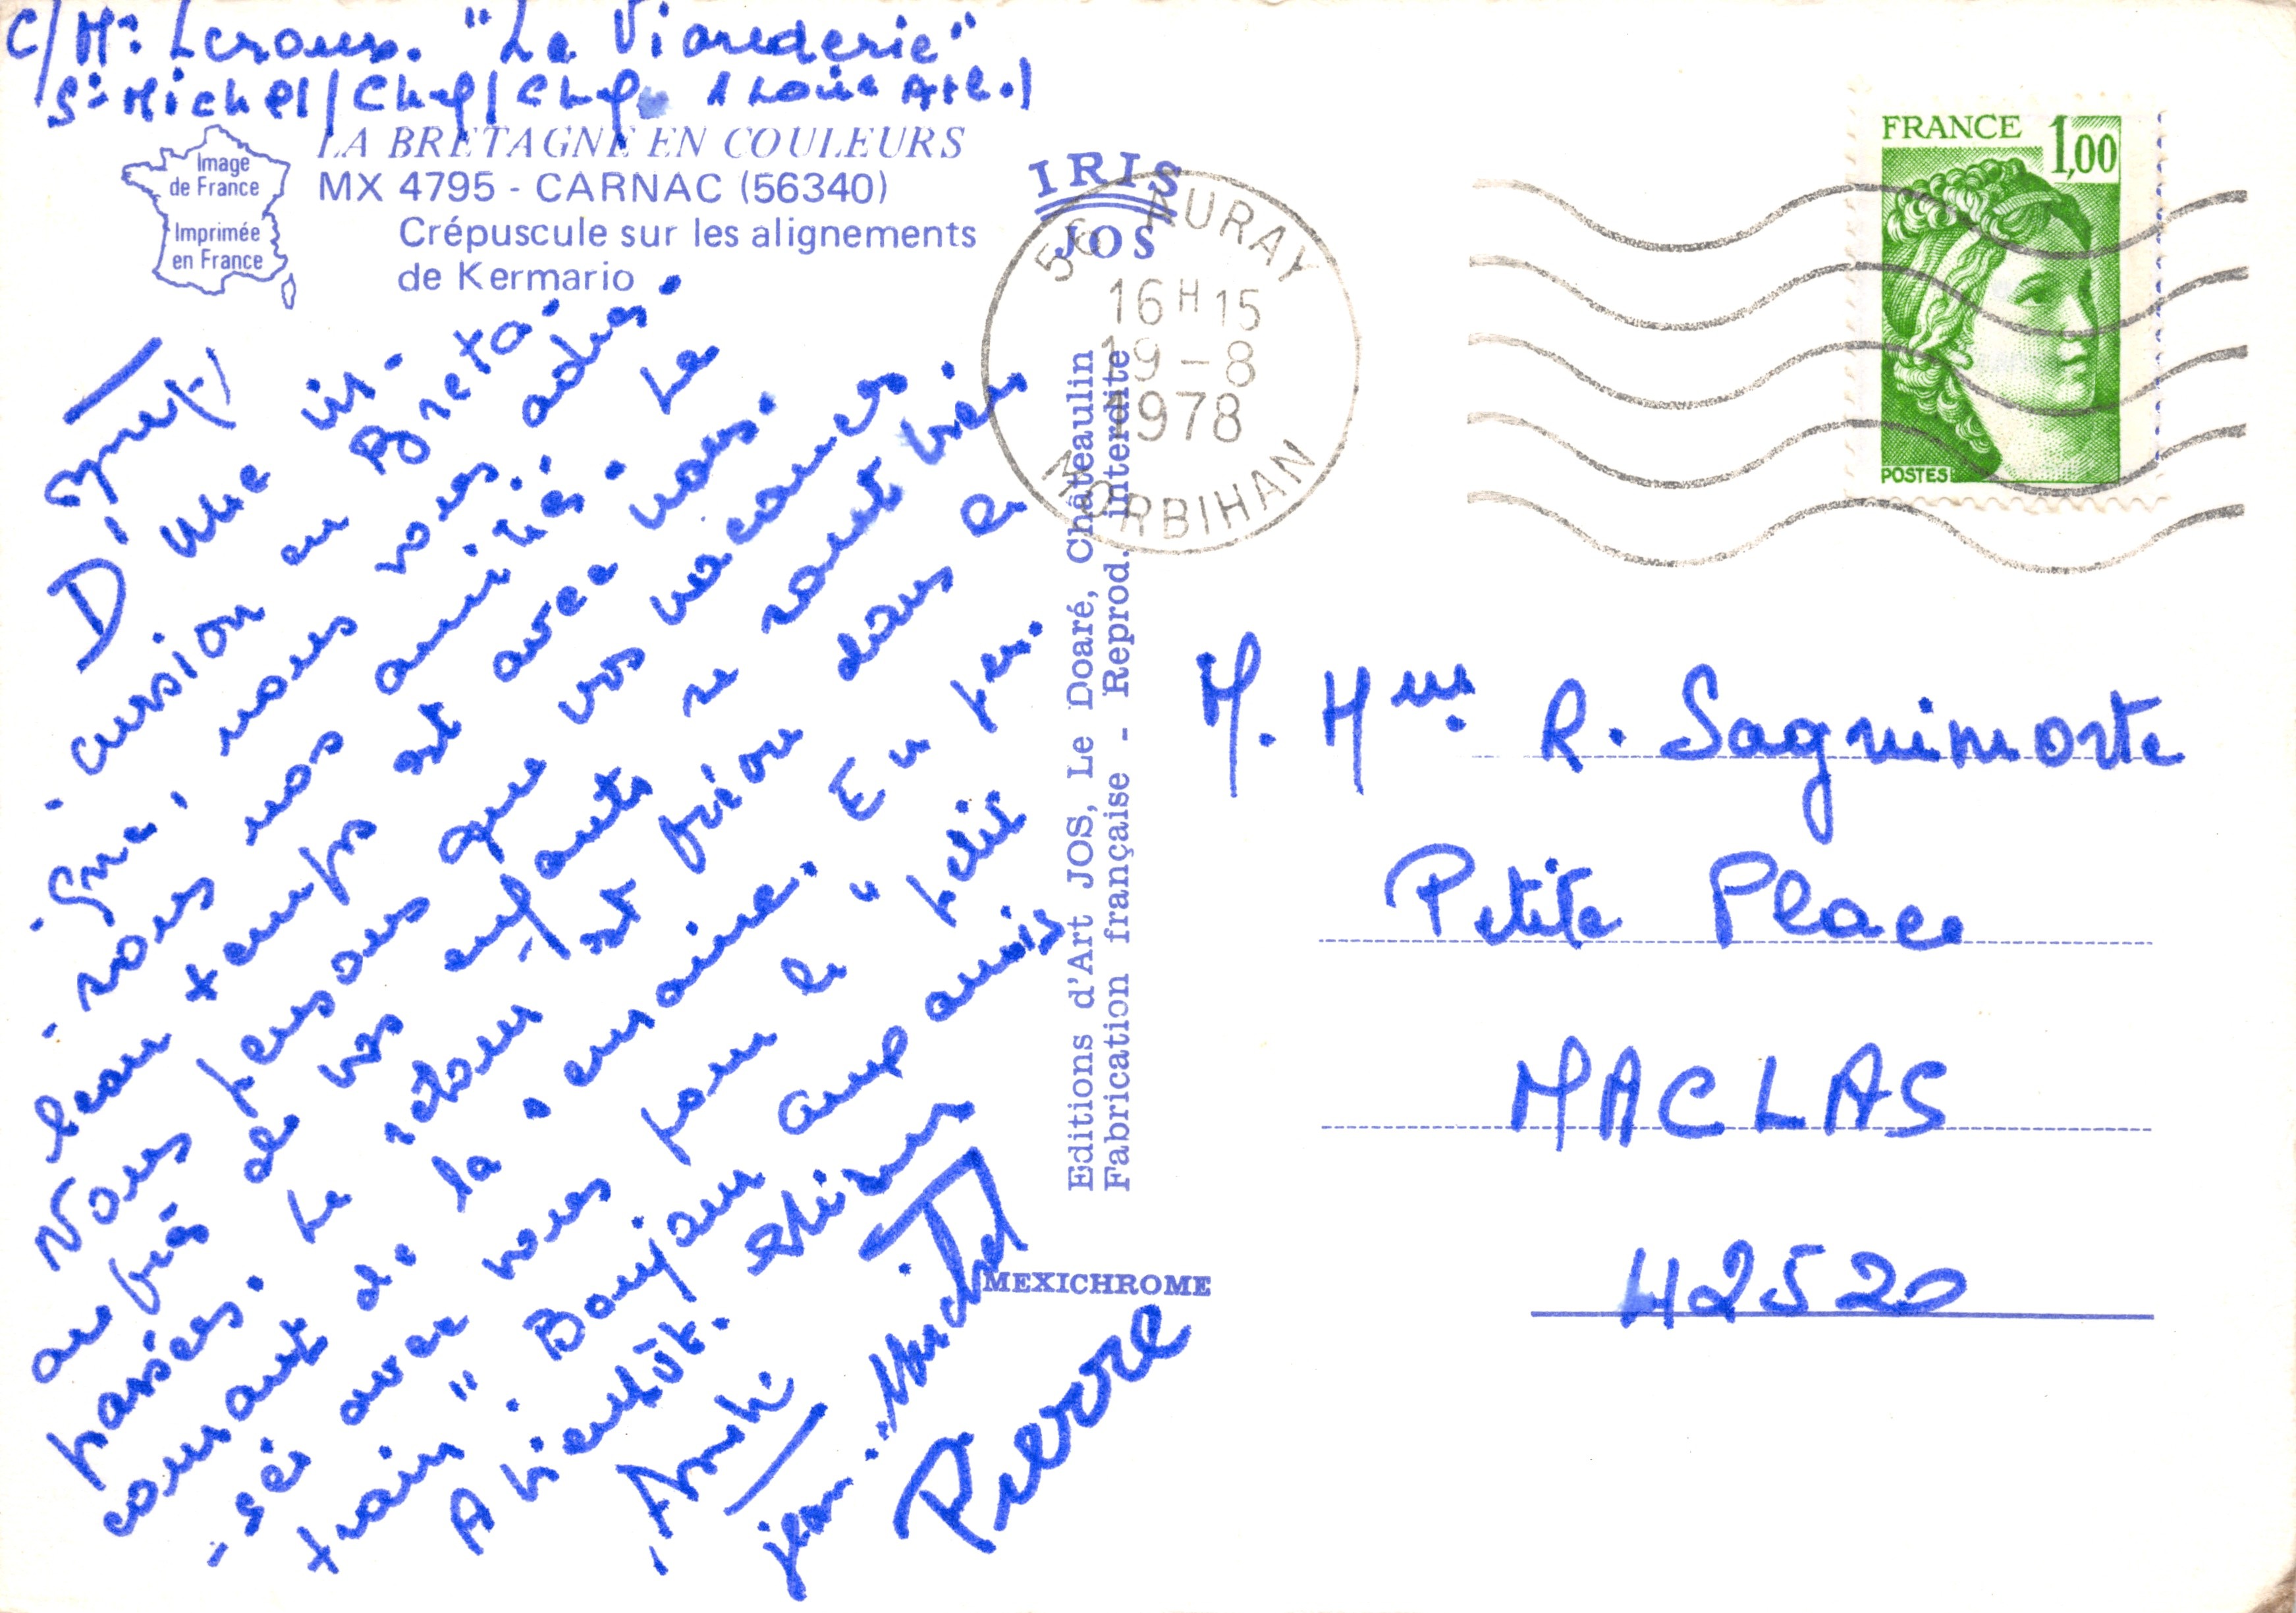 C/Mr Leroux. "La Viauderie"
St Michel/Chef/Chef (Loire Atl.)
LA BRETAGNE EN COULEURS
MX 4795 - CARNAC (56340)
Crépuscule sur les alignements
de Kermario
Image
de France
Imprimée
en France
IRIS
JOS
56 AURAY
16H15
19-8
1978
MORBIHAN
FRANCE 1,00
POSTES
D'une in-
-cursion en Breta-
-gne, nous vous adres-
-sons nos amitiés. Le
beau temps est avec nous.
Nous pensons que vos vacances
auprès de vos enfants se sont bien
passées. Le retour est prévu dans le
courant de la semaine. En pen-
-sée avec vous pour le "petit
train". Bonjour aux amis
A bientôt.
Jean-Michel
Pierre
Editions d'Art JOS, Le Doaré, Châteaulin
Fabrication française - Reprod. interdite
MEXICHROME
M. Mme R. Sagnimorte
Petite Place
MACLAS
42520